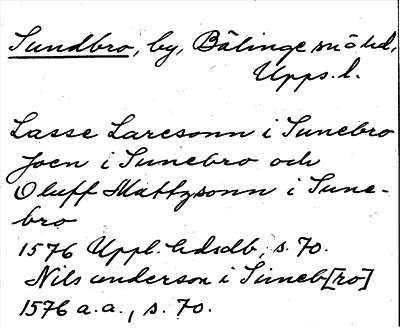 Sundbro, by, Bälinge sn o hd,
Upps. l.
Lasse Larssonn i Sunebro
Joen i Sunebro och
Oluff Mattzsonn i Sune-
bro
1576 Uppl. hdsdb, s. 70.
Nils anderson i Suneb[ro]
1576 a.a., s. 70.